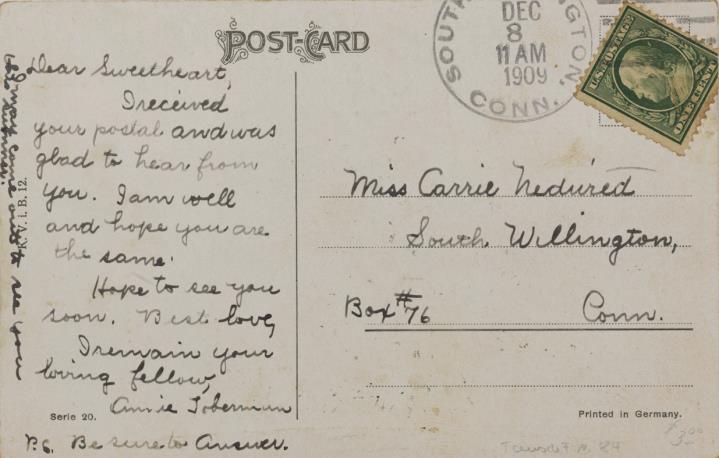 POST-CARD
Dear Sweetheart,
I received
your postal and was
glad to hear from
you. I am well
and hope you are
the same.
Hope to see you
soon. Best love,
I remain your
loving fellow,
Annie Toberman
P.S. Be sure to Answer.
may come out to see you
K. V. i. B. 12.
Serie 20.
SOUTH WILLINGTON, CONN.
DEC
8
11 AM
1909
U.S. POSTAGE
ONE CENT
Miss Carrie Nedured
South Willington,
Box #76 Conn.
Printed in Germany.